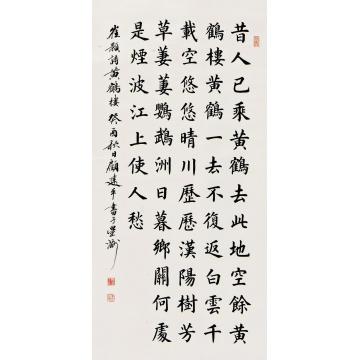 昔人已乘黃鶴去此地空餘黃
鶴樓黃鶴一去不復返白雲千
載空悠悠晴川歷歷漢陽樹芳
草萋萋鸚鵡洲日暮鄉關何處
是煙波江上使人愁
崔顥詩黃鶴樓 癸酉秋日顧建平書于